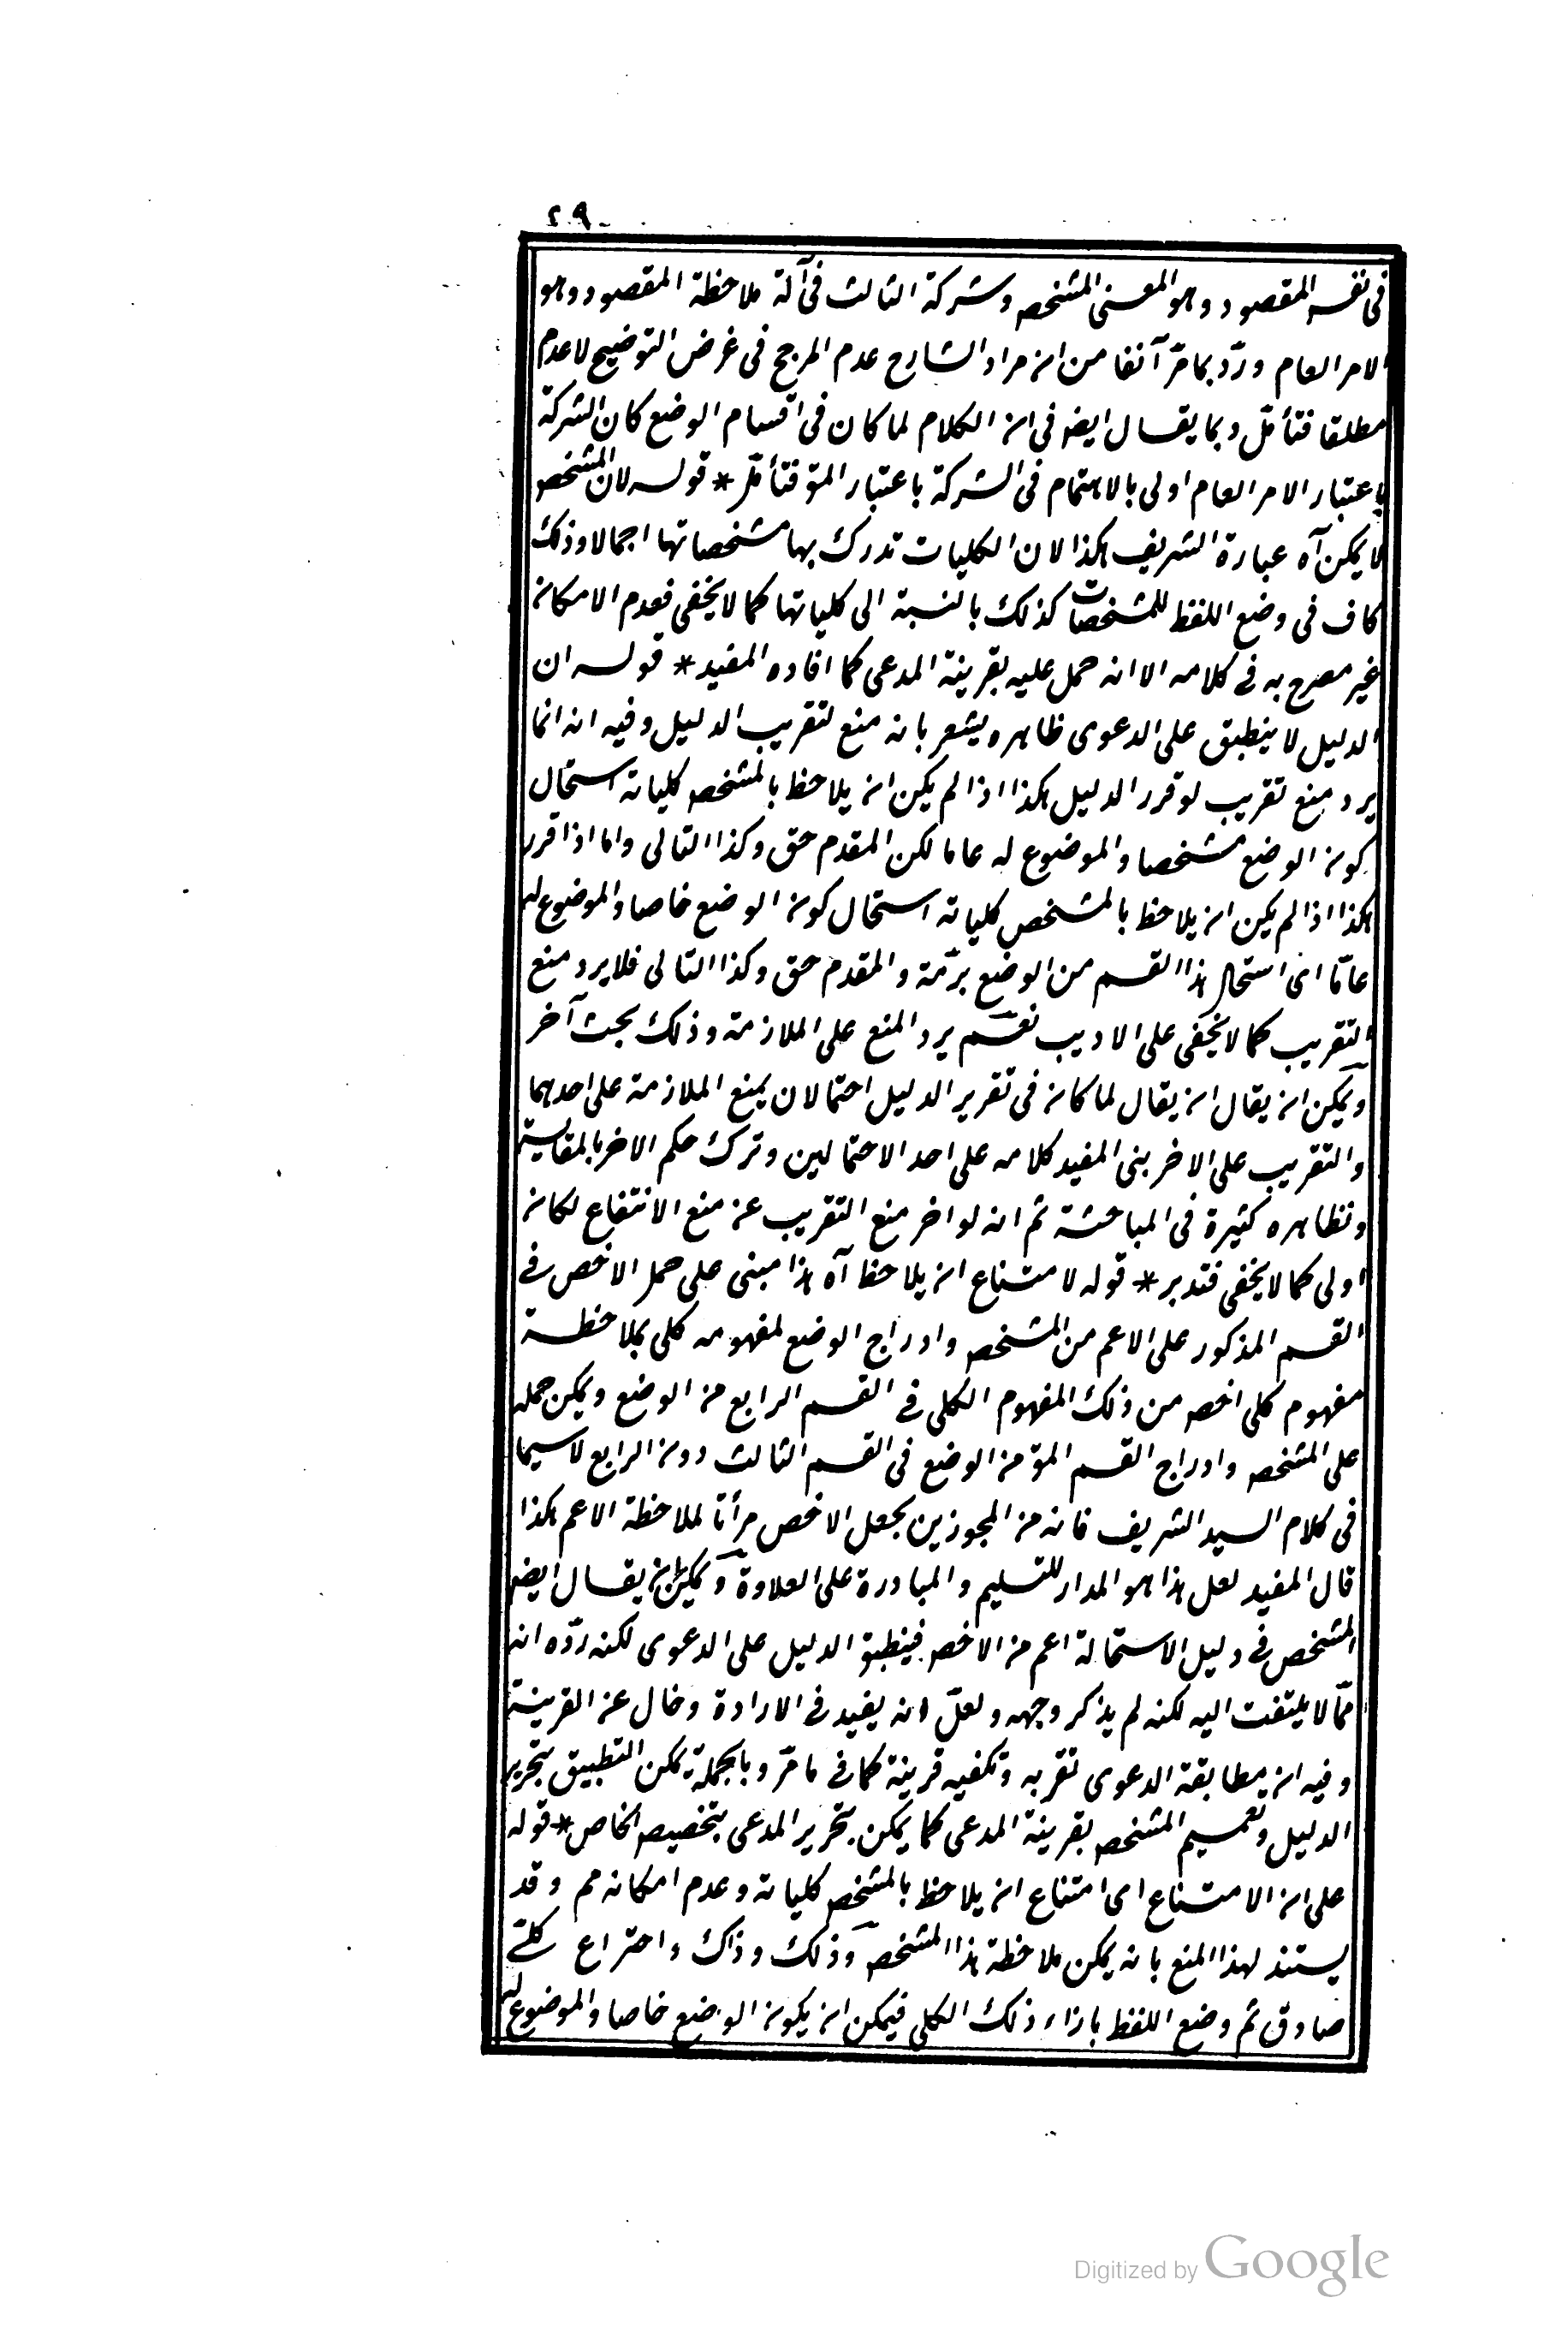 ٢٩
فى نفس المقصود وهو المعنى المشخص وشركة الثالث فى آلة ملاحظة المقصود وهو
الامر العام وردّ بما مرّ آنفا من ان مراد الشارح عدم المرجح فى غرض التوضيح لا عدم
مطلقا فتأمّل وبما يقال ايض فى ان الكلام لما كان فى اقسام الوضع كان الشركة
باعتبار الامر العام اولى بالاهتمام فى الشركة باعتبار المو فتأمّل * قوله لان المشخص
لا يمكن آه عبارة الشريف هكذا لان الكليات تدرك بها مشخصاتها اجمالا وذلك
كاف فى وضع اللفظ للمشخصات كذلك بالنسبة الى كلياتها كما لا يخفى فعدم الامكان
غير مصرح به فى كلامه الا انه حمل عليه بقرينة المدعى كما افاده المفيد * قوله ان
الدليل لا ينطبق على الدعوى ظاهره يشعر بانه منع لتقريب الدليل وفيه انه انما
يرد منع تقريب لو قرر الدليل هكذا اذا لم يكن ان يلاحظ بالمشخص كلياته استحال
كون الوضع مشخصا والموضوع له عاما لكن المقدم حق وكذا التالى واما اذا قرر
هكذا اذا لم يكن ان يلاحظ بالمشخص كلياته استحال كون الوضع خاصا والموضوع له
عامّا اى استحال هذا القسم من الوضع برمّته والمقدم حق وكذا التالى فلا يرد منع
التقريب كما لا يخفى على الاديب نعم يرد المنع على الملازمة وذلك بحث آخر
ويمكن ان يقال ان يقال لما كان فى تقرير الدليل احتمالان يمنع الملازمة على احدهما
والتقريب على الاخر بنى المفيد كلامه على احد الاحتمالين وترك حكم الاخر بالمقايسة
ونظاهره كثيرة فى المباحثة ثم انه لو اخر منع التقريب عن منع الانتفاع لكان
اولى كما لا يخفى فتدبر * قوله لامتناع ان يلاحظ آه هذا مبنى على حمل الاخص فى
القسم المذكور على الاعم من المشخص وادراج الوضع لمفهومه كلى بملاحظة
مفهوم كلى اخص من ذلك المفهوم الكلى فى القسم الرابع من الوضع ويمكن حمله
على المشخص وادراج القسم المو من الوضع فى القسم الثالث دون الرابع لا سيما
فى كلام السيد الشريف فانه من المجوزين بجعل الاخص مرأتا لملاحظة الاعم هكذا
قال المفيد لعل هذا هو المدار للتسليم والمبادرة على العلاوة ويمكن ان يقال ايض
المشخص فى دليل الاستحالة اعم من الاخص فينطبق الدليل على الدعوى لكنه ردّه انه
ممّا لا يلتفت اليه لكنه لم يذكر وجهه ولعلّ انه يفيد فى الارادة وخال عن القرينة
وفيه ان مطابقة الدعوى تقربه وتكفيه قرينة كما فى ما مرّ وبالجملة يمكن التطبيق بتحرير
الدليل وتعميم المشخص بقرينة المدعى كما يمكن بتحرير المدعى بتخصيص الخاص * قوله
على ان الامتناع اى امتناع ان يلاحظ بالمشخص كلياته وعدم امكانه مم وقد
يستند لهذا المنع بانه يمكن ملاحظة هذا المشخص وذلك وذاك واختراع كلىّ
صادق ثم وضع اللفظ بازاء ذلك الكلى فيمكن ان يكون الوضع خاصا والموضوع له
Digitized by Google